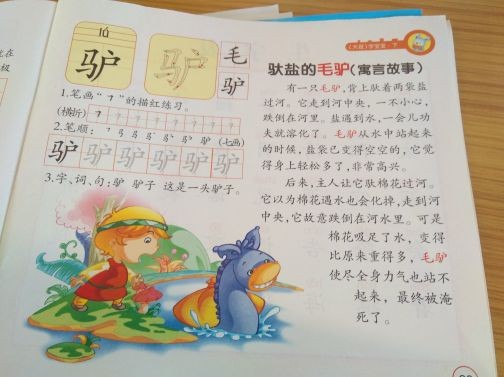 lú
驴
驴
毛
驴
1.笔画“㇕”的描红练习。
(横折)
2.笔顺:
(七画)
驴
3.字、词、句:驴 驴子 这是一头驴子。
(大班)学宝宝·下
驮盐的毛驴(寓言故事)
有一只毛驴,背上驮着两袋盐
过河。它走到河中央,一不小心,
跌倒在河里。盐遇到水,一会儿功
夫就溶化了。毛驴从水中站起来
的时候,盐袋已变得空空的,它觉
得身上轻松多了,非常高兴。
后来,主人让它驮棉花过河。
它以为棉花遇水也会化掉,走到河
中央,它故意跌倒在河水里。可是
棉花吸足了水,变得
比原来重得多,毛驴
使尽全身力气也站不
起来,最终被淹
死了。
就在
极